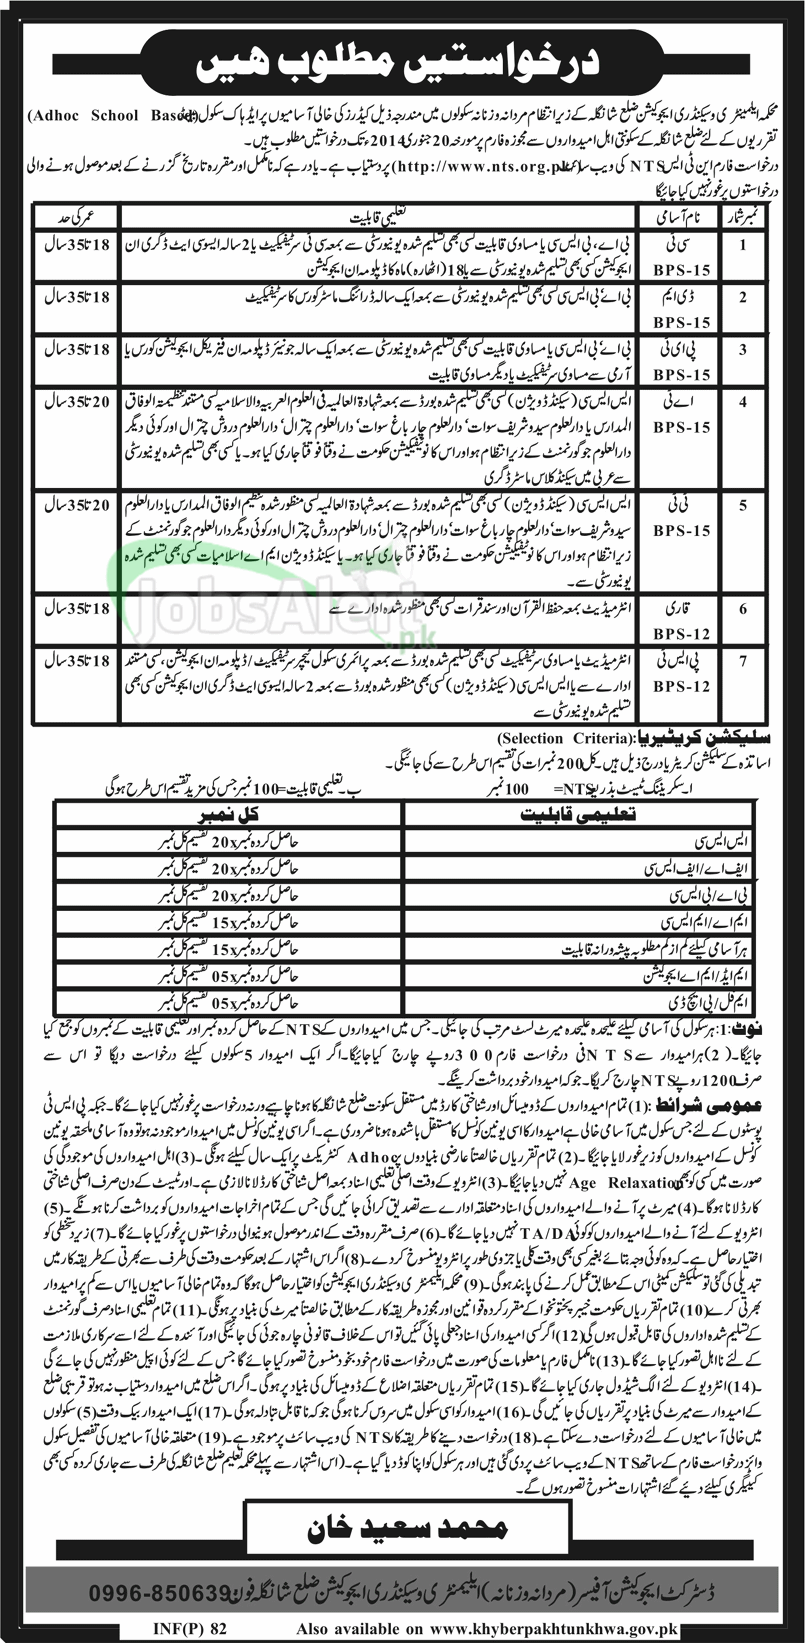 درخواستیں مطلوب ھیں
محکمہ ایلیمنٹری و سیکنڈری ایجوکیشن ضلع شانگلہ کے زیر انتظام مردانہ و زنانہ سکولوں میں مندرجہ ذیل کیڈرز کی خالی آسامیوں پر ایڈہاک سکول بیسڈ (Adhoc School Based)
تقرریوں کے لئے ضلع شانگلہ کے سکونتی اہل امیدواروں سے مجوزہ فارم پر مورخہ 20 جنوری 2014ء تک درخواستیں مطلوب ہیں۔
درخواست فارم این ٹی ایس NTS کی ویب سائٹ (http://www.nts.org.pk/) پر دستیاب ہے۔ یاد رہے کہ نامکمل اور مقررہ تاریخ گزرنے کے بعد موصول ہونے والی
درخواستوں پر غور نہیں کیا جائیگا
نمبر شمار نام آسامی تعلیمی قابلیت عمر کی حد
1 سی ٹی BPS-15 بی اے، بی ایس سی یا مساوی قابلیت کسی بھی تسلیم شدہ یونیورسٹی سے بمعہ سی ٹی سرٹیفکیٹ یا 2 سالہ ایسوسی ایٹ ڈگری ان 18 تا 35 سال
ایجوکیشن کسی بھی تسلیم شدہ یونیورسٹی سے یا 18 (اٹھارہ) ماہ کا ڈپلومہ ان ایجوکیشن
2 ڈی ایم BPS-15 بی اے/بی ایس سی کسی بھی تسلیم شدہ یونیورسٹی سے بمعہ ایک سالہ ڈرائنگ ماسٹر کورس کا سرٹیفکیٹ 18 تا 35 سال
3 پی ای ٹی BPS-15 بی اے/بی ایس سی یا مساوی قابلیت کسی بھی تسلیم شدہ یونیورسٹی سے بمعہ ایک سالہ جونیئر ڈپلومہ ان فزیکل ایجوکیشن کورس یا 18 تا 35 سال
آرمی سے مساوی سرٹیفکیٹ یا دیگر مساوی قابلیت
4 اے ٹی BPS-15 ایس ایس سی (سیکنڈ ڈویژن) کسی بھی تسلیم شدہ بورڈ سے بمعہ شہادۃ العالمیہ فی العلوم العربیہ والاسلامیہ کسی مستند تنظیمۃ الوفاق 20 تا 35 سال
المدارس یا دارالعلوم سیدو شریف سوات، دارالعلوم چارباغ سوات، دارالعلوم چترال، دارالعلوم دروش چترال اور کوئی دیگر
دارالعلوم جو گورنمنٹ کے زیر انتظام ہو اور اس کا نوٹیفکیشن حکومت نے وقتاً فوقتاً جاری کیا ہو۔ یا کسی بھی تسلیم شدہ یونیورسٹی
سے عربی میں سیکنڈ کلاس ماسٹر ڈگری
5 ٹی ٹی BPS-15 ایس ایس سی (سیکنڈ ڈویژن) کسی بھی تسلیم شدہ بورڈ سے بمعہ شہادۃ العالمیہ کسی منظور شدہ تنظیم الوفاق المدارس یا دارالعلوم 20 تا 35 سال
سیدو شریف سوات، دارالعلوم چارباغ سوات، دارالعلوم چترال، دارالعلوم دروش چترال اور کوئی دیگر دارالعلوم جو گورنمنٹ کے
زیر انتظام ہو اور اس کا نوٹیفکیشن حکومت نے وقتاً فوقتاً جاری کیا ہو۔ یا سیکنڈ ڈویژن ایم اے اسلامیات کسی بھی تسلیم شدہ
یونیورسٹی سے۔
6 قاری BPS-12 انٹرمیڈیٹ بمعہ حفظ القرآن اور سند قرات کسی بھی منظور شدہ ادارے سے 18 تا 35 سال
7 پی ایس ٹی BPS-12 انٹرمیڈیٹ یا مساوی سرٹیفکیٹ کسی بھی تسلیم شدہ بورڈ سے بمعہ پرائمری سکول ٹیچر سرٹیفکیٹ/ڈپلومہ ان ایجوکیشن، کسی مستند 18 تا 35 سال
ادارے سے یا ایس ایس سی (سیکنڈ ڈویژن) کسی بھی منظور شدہ بورڈ سے بمعہ 2 سالہ ایسوسی ایٹ ڈگری ان ایجوکیشن کسی بھی
تسلیم شدہ یونیورسٹی سے
JobsAlert.pk
سلیکشن کریٹیریا: (Selection Criteria)
اساتذہ کے سلیکشن کریٹریا درج ذیل ہیں۔ کل 200 نمبرات کی تقسیم اس طرح سے کی جائیگی۔
ا۔ سکریننگ ٹیسٹ بذریعہ NTS = 100 نمبر ب۔ تعلیمی قابلیت = 100 نمبر جس کی مزید تقسیم اس طرح ہوگی
تعلیمی قابلیت کل نمبر
ایس ایس سی حاصل کردہ نمبر x 20 تقسیم کل نمبر
ایف اے/ایف ایس سی حاصل کردہ نمبر x 20 تقسیم کل نمبر
بی اے/بی ایس سی حاصل کردہ نمبر x 20 تقسیم کل نمبر
ایم اے/ایم ایس سی حاصل کردہ نمبر x 15 تقسیم کل نمبر
ہر آسامی کیلئے کم از کم مطلوبہ پیشہ ورانہ قابلیت حاصل کردہ نمبر x 15 تقسیم کل نمبر
ایم ایڈ/ایم اے ایجوکیشن حاصل کردہ نمبر x 05 تقسیم کل نمبر
ایم فل/پی ایچ ڈی حاصل کردہ نمبر x 05 تقسیم کل نمبر
نوٹ: 1: ہر سکول کی آسامی کیلئے علیحدہ علیحدہ میرٹ لسٹ مرتب کی جائیگی۔ جس میں امیدواروں کے NTS کے حاصل کردہ نمبر اور تعلیمی قابلیت کے نمبروں کو جمع کیا
جائیگا۔ (2) ہر امیدوار سے NTS فی درخواست فارم 300 روپے چارج کیا جائیگا۔ اگر ایک امیدوار 5 سکولوں کیلئے درخواست دیگا تو اس سے
صرف 1200 روپے NTS چارج کریگا۔ جو کہ امیدوار خود برداشت کرینگے۔
عمومی شرائط: (1) تمام امیدواروں کے ڈومیسائل اور شناختی کارڈ میں مستقل سکونت ضلع شانگلہ کا ہونا چاہیے ورنہ درخواست پر غور نہیں کیا جائے گا۔ جبکہ پی ایس ٹی
پوسٹوں کے لئے جس سکول میں آسامی خالی ہے امیدوار کا اسی یونین کونسل کا مستقل باشندہ ہونا ضروری ہے۔ اگر اسی یونین کونسل میں امیدوار موجود نہ ہو تو وہ آسامی ملحقہ یونین
کونسل کے امیدواروں کو زیر غور لایا جائیگا۔ (2) تمام تقرریاں خالصتاً عارضی بنیادوں پر Adhoc کنٹریکٹ پر ایک سال کیلئے ہونگی۔ (3) اہل امیدواروں کی موجودگی کی
صورت میں کسی کو بھی Age Relaxation نہیں دیا جائیگا۔ (3) انٹرویو کے وقت اصلی تعلیمی اسناد بمعہ اصل شناختی کارڈ لانا لازمی ہے۔ اور ٹیسٹ کے دن صرف اصلی شناختی
کارڈ لانا ہوگا۔ (4) میرٹ پر آنے والے امیدواروں کی اسناد متعلقہ ادارے سے تصدیق کرائی جائیں گی جس کے تمام اخراجات امیدواروں کو برداشت کرنا ہونگے۔ (5)
انٹرویو کے لئے آنے والے امیدواروں کو کوئی TA/DA نہیں دیا جائے گا۔ (6) صرف مقررہ وقت کے اندر موصول ہونیوالی درخواستوں پر غور کیا جائے گا۔ (7) زیر دستخطی کو
اختیار حاصل ہے۔ کہ وہ کوئی وجہ بتائے بغیر کسی بھی وقت کلی یا جزوی طور پر انٹرویو منسوخ کر دے۔ (8) اگر اس اشتہار کے بعد حکومت وقت کی طرف سے بھرتی کے طریقہ کار میں
تبدیلی کی گئی تو سلیکشن کمیٹی اس کے مطابق عمل کرنے کی پابند ہوگی۔ (9) محکمہ ایلیمنٹری و سیکنڈری ایجوکیشن کو اختیار حاصل ہوگا کہ وہ تمام خالی آسامیوں یا اس سے کم پر امیدوار
بھرتی کرے (10) تمام تقرریاں حکومت خیبر پختونخوا کے مقرر کردہ قوانین اور مجوزہ طریقہ کار کے مطابق خالصتاً میرٹ کی بنیاد پر ہونگی۔ (11) تمام تعلیمی اسناد صرف گورنمنٹ
کے تسلیم شدہ اداروں کی قابل قبول ہوں گی (12) اگر کسی امیدوار کی اسناد جعلی پائی گئیں تو اس کے خلاف قانونی چارہ جوئی کی جائیگی اور آئندہ کے لئے اسے سرکاری ملازمت
کے لئے نااہل تصور کیا جائے گا۔ (13) نامکمل فارم یا معلومات کی صورت میں درخواست فارم خود بخود منسوخ تصور کیا جائے گا جس کے لئے کوئی اپیل منظور نہیں کی جائے گی
۔ (14) انٹرویو کے لئے الگ شیڈول جاری کیا جائے گا۔ (15) تمام تقرریاں متعلقہ اضلاع کے ڈومیسائل کی بنیاد پر ہوگی۔ اگر اس ضلع میں امیدوار دستیاب نہ ہو تو قریبی ضلع
کے امیدوار سے میرٹ کی بنیاد پر تقرریاں کی جائیں گی۔ (16) امیدوار کو اسی سکول میں سروس کرنا ہوگی جو کہ ناقابل تبادلہ ہوگی۔ (17) ایک امیدوار بیک وقت (5) سکولوں
میں خالی آسامیوں کے لئے درخواست دے سکتا ہے۔ (18) درخواست دینے کا طریقہ کار NTS کی ویب سائٹ پر موجود ہے۔ (19) متعلقہ خالی آسامیوں کی تفصیل سکول
وائز درخواست فارم کے ساتھ NTS کے ویب سائٹ پر دی گئی ہیں اور ہر سکول کو اپنا کوڈ دیا گیا ہے۔ (اس اشتہار سے پہلے محکمہ تعلیم ضلع شانگلہ کی طرف سے جاری کردہ کسی بھی
کیٹیگری کیلئے دیئے گئے اشتہارات منسوخ تصور ہوں گے۔
محمد سعید خان
ڈسٹرکٹ ایجوکیشن آفیسر (مردانہ و زنانہ) ایلیمنٹری و سیکنڈری ایجوکیشن ضلع شانگلہ فون: 0996-850639
INF(P) 82 Also available on www.khyberpakhtunkhwa.gov.pk